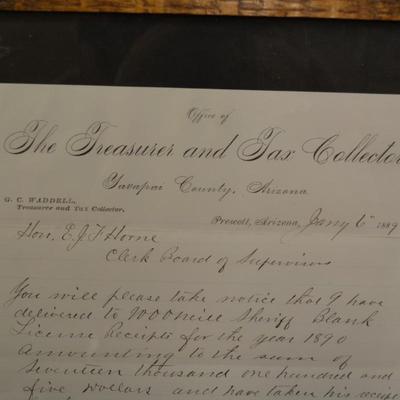 Office of
The Treasurer and Tax Collector
Yavapai County, Arizona
G. C. WADDELL,
Treasurer and Tax Collector.
Prescott, Arizona, Jany 6" 1889
Hon. E. J. F. Horne
Clerk Board of Supervisors
You will please take notice that I have
delivered to W O O'Neill Sheriff Blank
License Receipts for the year 1890
amounting to the sum of
seventeen thousand one hundred and
five dollars and have taken his receipt